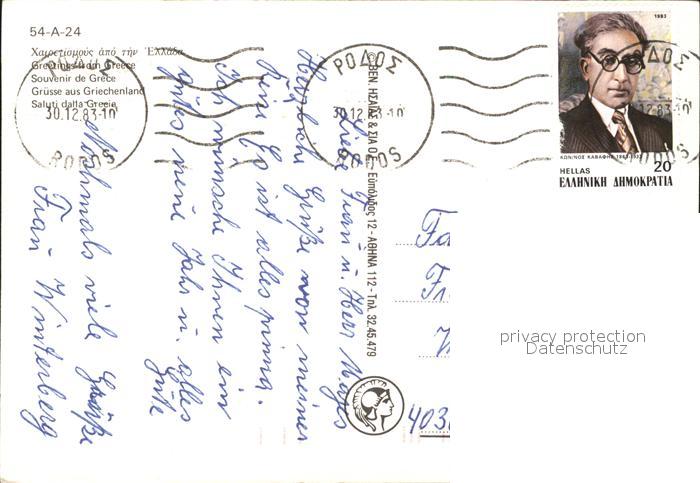 54-A-24
Χαιρετισμούς ἀπό τήν Ἑλλάδα
Greetings from Greece
Souvenir de Grèce
Grüsse aus Griechenland
Saluti dalla Grecia
ΡΟΔΟΣ
30.12.83-10
RODOS
ΡΟΔΟΣ
30.12.83-10
RODOS
ΡΟΔΟΣ
.12.83-10
RODOS
1983
ΚΩΝ/ΝΟΣ ΚΑΒΑΦΗΣ 1863-1933
HELLAS 20
ΕΛΛΗΝΙΚΗ ΔΗΜΟΚΡΑΤΙΑ
© ΒΕΝ ΗΣΑΪΑΣ & ΣΙΑ Ο.Ε. - Ευπόλιδος 12 - ΑΘΗΝΑ 112 - Τηλ. 32.45.479
Liebe Frau u. Herr
Herzlich Grüße von meiner
Reise. Es ist alles prima.
Ich wünsche Ihnen ein
gutes neue Jahr u. alles
Gute
Nochmals viele Grüße
Frau Winterberg
Fa
Fr
W
403
privacy protection
Datenschutz